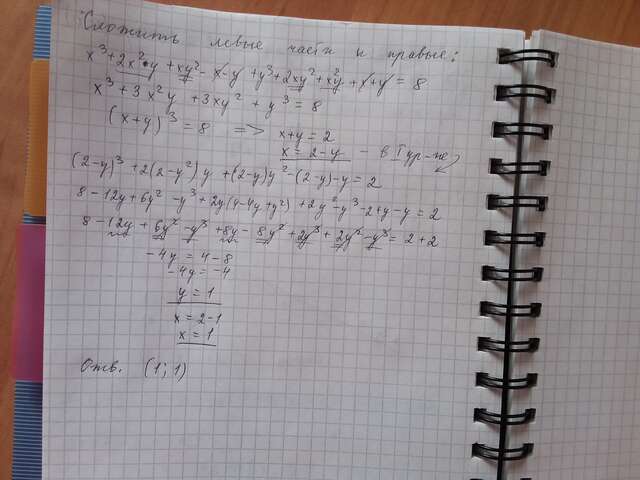 Сложить левые части и правые:
x³+2x²·y+xy²-x-y+y³+2xy²+x²y+x+y=8
x³+3x²y+3xy²+y³=8
(x+y)³=8 => x+y=2
x=2-y - в I ур-ие
(2-y)³+2(2-y²)y+(2-y)y²-(2-y)-y=2
8-12y+6y²-y³+2y(4-4y+y²)+2y²-y³-2+y-y=2
8-12y+6y²-y³+8y-8y²+2y³+2y²-y³=2+2
-4y=4-8
-4y=-4
y=1
x=2-1
x=1
Отв. (1;1)